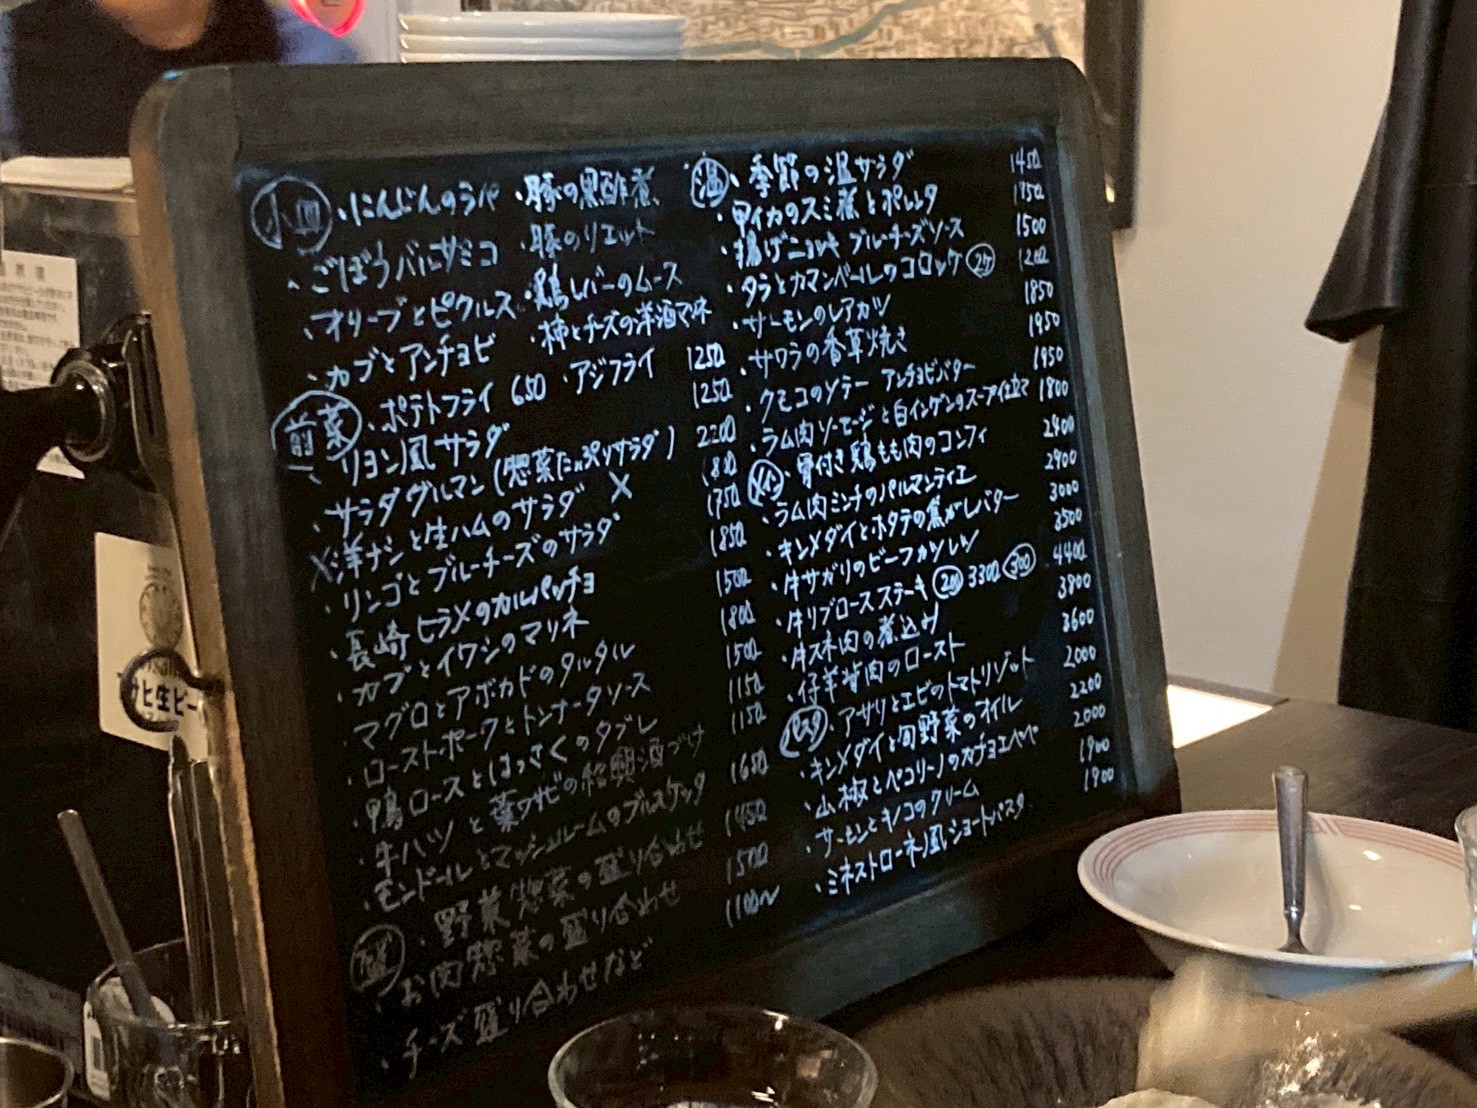 小皿 ・にんじんのラペ ・豚の黒酢煮
・ごぼうバルサミコ ・豚のリエット
・オリーブとピクルス ・鶏レバーのムース
・カブとアンチョビ ・柿とチーズの洋酒マリネ
前菜 ・ポテトフライ 650 ・アジフライ 1250
・リヨン風サラダ 1250
・サラダグルマン(惣菜たっぷりサラダ) 2200
X・洋ナシと生ハムのサラダ X 1800
・リンゴとブルーチーズのサラダ 1750
・長崎ヒラメのカルパッチョ 1850
・カブとイワシのマリネ 1500
・マグロとアボカドのタルタル 1800
・ローストポークとトンナータソース 1500
・鴨ロースとはっさくのタブレ 1150
・牛ハツと葉ワサビの紹興酒づけ 1150
・モンドールとマッシュルームのブルスケッタ 1650
盛 ・野菜惣菜の盛り合わせ 1450
・お肉惣菜の盛り合わせ 1500
・チーズ盛り合わせなど 1100〜
温 ・季節の温サラダ 1450
・甲イカのスミ煮とポレンタ 1750
・揚げニョッキ ブルーチーズソース 1500
・タラとカマンベールのコロッケ 2ケ 1200
・サーモンのレアカツ 1850
・サワラの香草焼き 1950
・クモコのソテー アンチョビバター 1950
・ラム肉ソーセージと白インゲンのスープ仕立て 1800
メイン ・骨付き鶏もも肉のコンフィ 2400
・ラム肉ミンチのパルマンティエ 2900
・キンメダイとホタテの焦がしバター 3000
・牛サガリのビーフカツレツ 3500
・牛リブロースステーキ 200 3300 300 4400
・牛スネ肉の煮込み 3800
・仔羊背肉のロースト 3600
パスタ ・アサリとエビのトマトリゾット 2000
・キンメダイと旬野菜のオイル 2200
・山椒とペコリーノのカチョエペペ 2000
・サーモンとキノコのクリーム 1900
・ミネストローネ風ショートパスタ 1900
生ビー